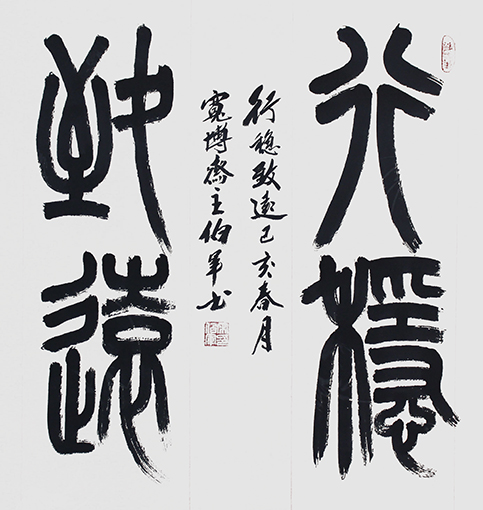 行穩
行穩致遠己亥春月
寬博齋主伯軍書
致遠